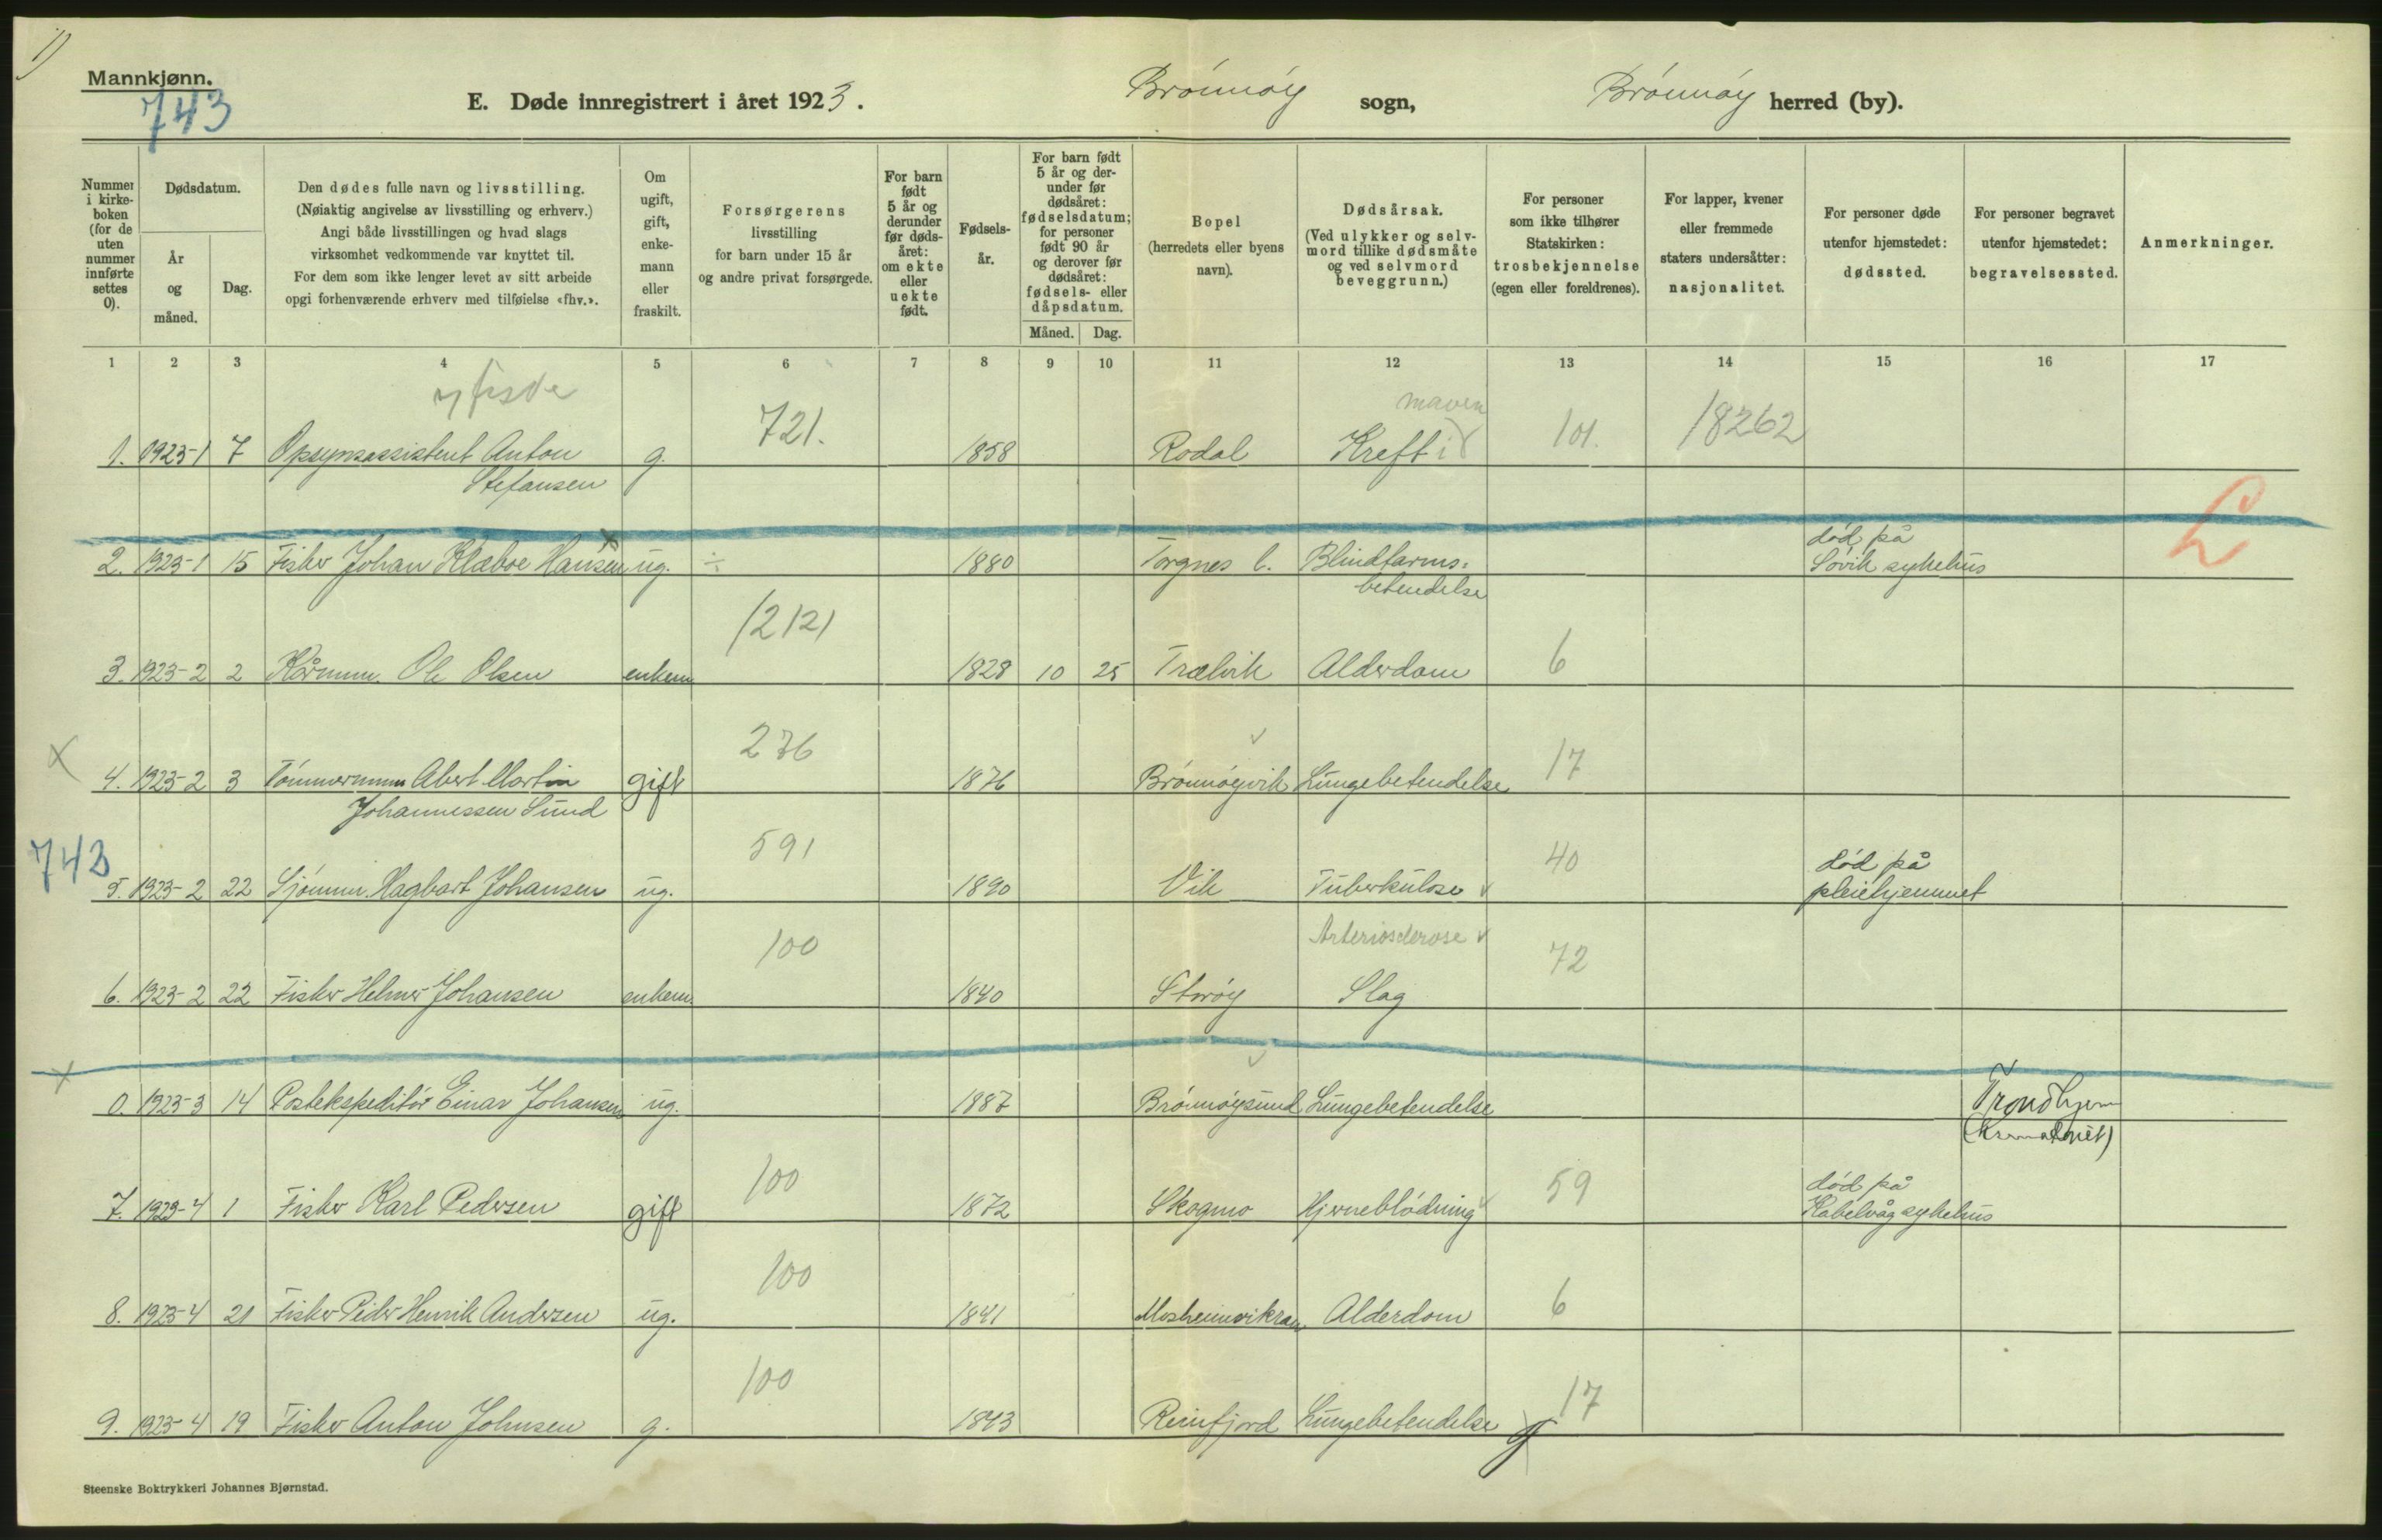 1)
Mannkjønn.
743
E. Døde innregistrert i året 1923. Brønnøy sogn, Brønnøy herred (by).
Nummer i kirkeboken (for de uten nummer innførte settes 0).
Dødsdatum.
År og måned.
Dag.
Den dødes fulle navn og livsstilling.
(Nøiaktig angivelse av livsstilling og erhverv.)
Angi både livsstillingen og hvad slags
virksomhet vedkommende var knyttet til.
For dem som ikke lenger levet av sitt arbeide
opgi forhenværende erhverv med tilføielse «fhv.».
Om ugift, gift, enkemann eller fraskilt.
Forsørgerens
livsstilling
for barn under 15 år
og andre privat forsørgede.
For barn født 5 år og derunder før dødsåret: om ekte eller uekte født.
Fødselsår.
For barn født 5 år og derunder før dødsåret: fødselsdatum; for personer født 90 år og derover før dødsåret: fødsels- eller dåpsdatum.
Måned. Dag.
Bopel
(herredets eller byens
navn).
Dødsårsak.
(Ved ulykker og selvmord tillike dødsmåte og ved selvmord beveggrunn.)
For personer
som ikke tilhører
Statskirken:
trosbekjennelse
(egen eller foreldrenes).
For lapper, kvener
eller fremmede
staters undersåtter:
nasjonalitet.
For personer døde
utenfor hjemstedet:
dødssted.
For personer begravet
utenfor hjemstedet:
begravelsessted.
Anmerkninger.
1 2 3 4 5 6 7 8 9 10 11 12 13 14 15 16 17
721. maven 101. 18262
1. 1923-1 7 Opsynsassistent Anton g. 1858 Rodal Kreft i
Stefansen
L
død på
2. 1923-1 15 Fisker Johan Klæboe Hansen ug. ÷ 1880 Torgnes l. Blindtarms- Søvik sykehus
betendelse
12121 6
3. 1923-2 2 Kårmnn. Ole Olsen enkem 1828 10 25 Trælvik Alderdom
x 276 17
4. 1923-2 3 Tømmermnn Abert Martin gift 1876 Brønnøyvik Lungebetendelse
Johannessen Sund
743 591 40 død på
5. 1923-2 22 Sjømnn. Hagbart Johansen ug. 1890 Vik Tuberkulose pleiehjemmet
100 Arteriosclerose 72
6. 1923-2 22 Fisker Helmer Johansen enkem 1840 Storøy Slag
x
0. 1923-3 14 Postekspeditør Einar Johansen ug. 1887 Brønnøysund Lungebetendelse Trondhjem
(Krematoriet)
100 59 død på
7. 1923-4 1 Fisker Karl Pedersen gift 1872 Skogmo Hjerneblødning Kabelvåg sykehus
100 6
8. 1923-4 21 Fisker Peder Henrik Andersen ug. 1841 Alderdom
100 17
9. 1923-4 19 Fisker Anton Johnsen g. 1843 Reinfjord Lungebetendelse
Steenske Boktrykkeri Johannes Bjørnstad.